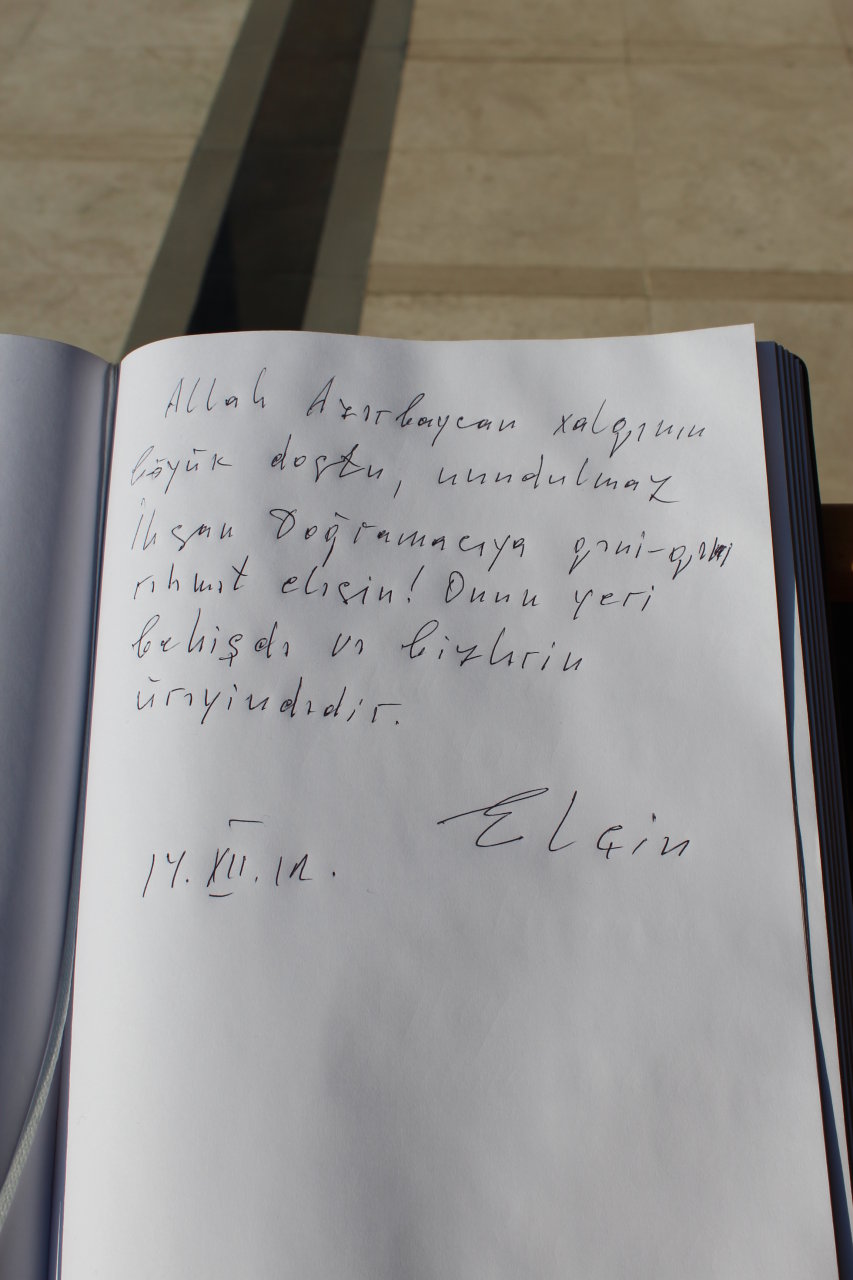 Allah Azərbaycan xalqının
böyük dostu, unudulmaz
İhsan Doğramacıya qəni-qəni
rəhmət eləsin! Onun yeri
behişdə və bizlərin
ürəyindədir.
Elçin
14.XII.12.